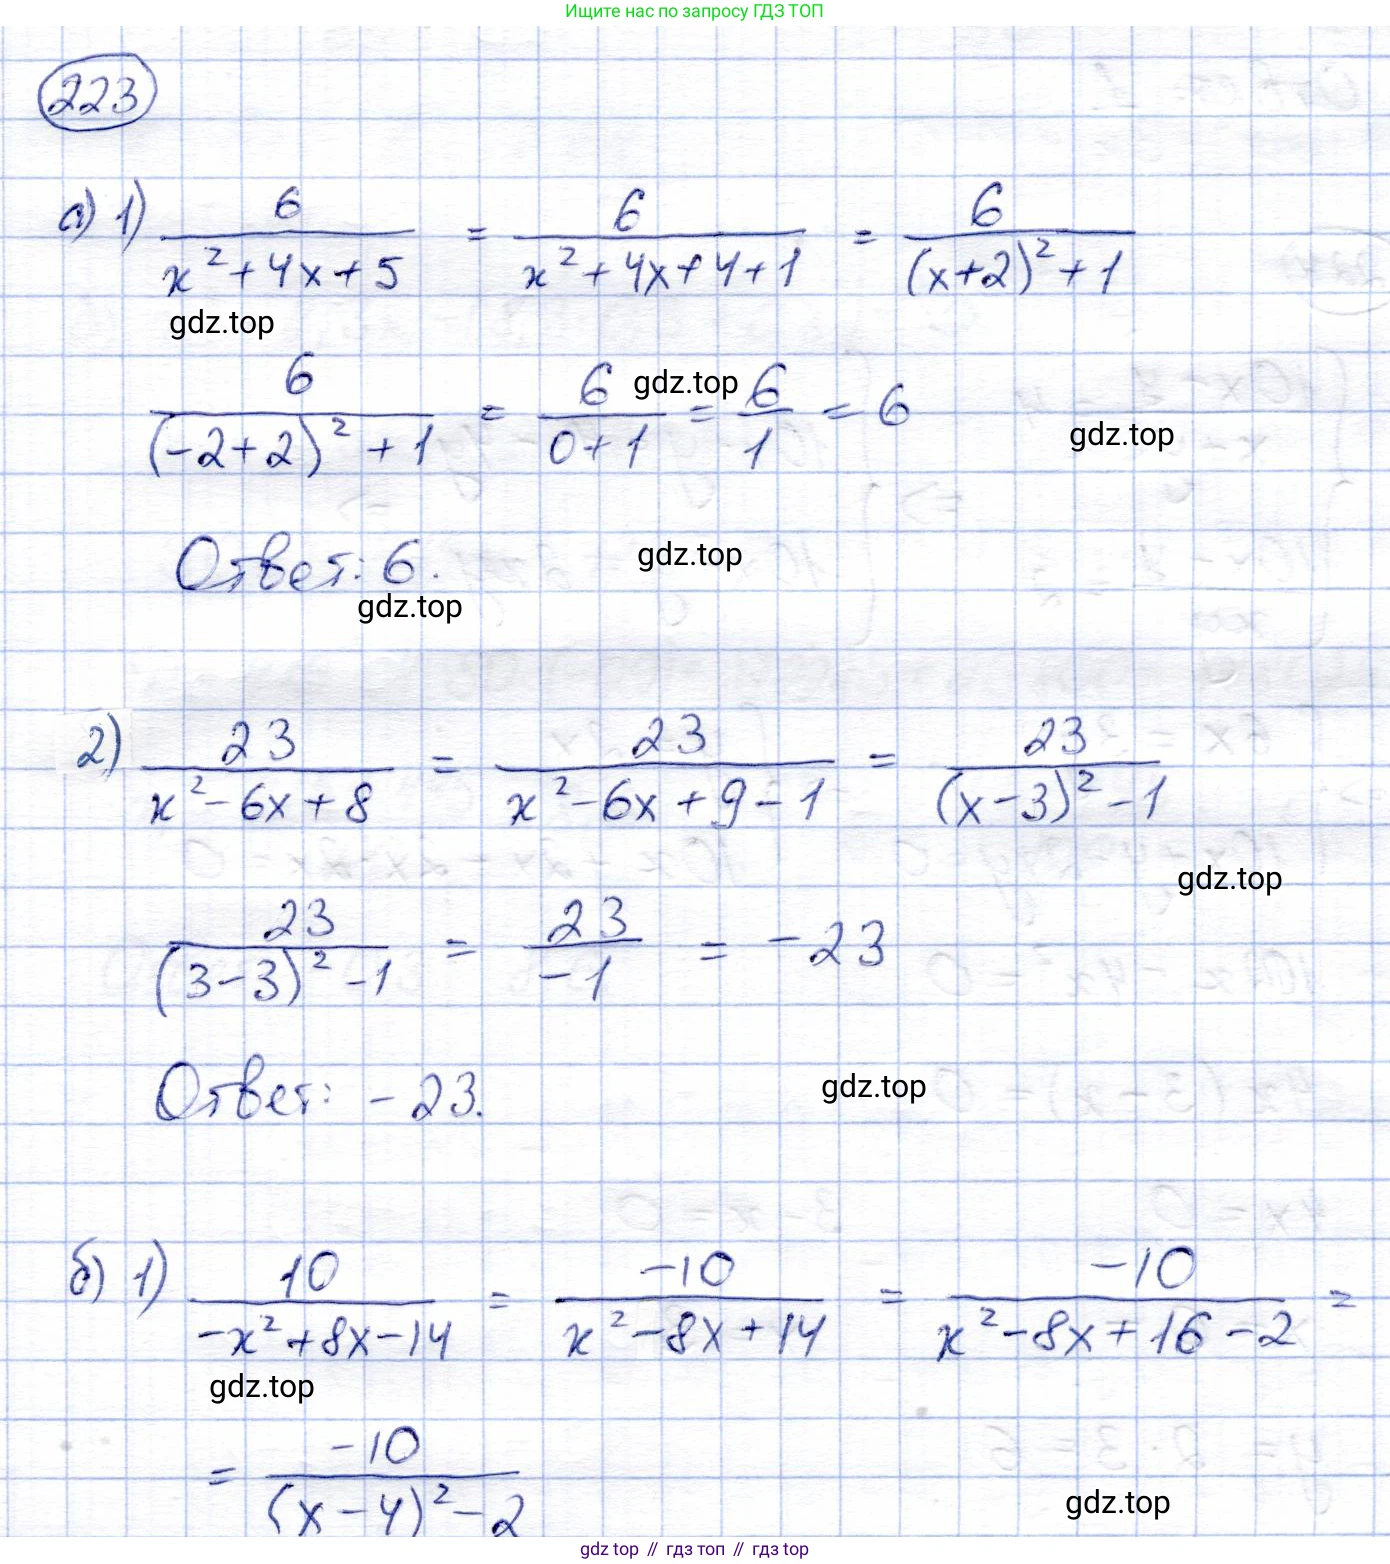 Ищите нас по запросу ГДЗ ТОП
223
а) 1) 6/(x²+4x+5) = 6/(x²+4x+4+1) = 6/((x+2)²+1)
gdz.top
6/((-2+2)²+1) = 6/(0+1) = 6/1 = 6
gdz.top
gdz.top
Ответ: 6.
gdz.top
gdz.top
2) 23/(x²-6x+8) = 23/(x²-6x+9-1) = 23/((x-3)²-1)
gdz.top
23/((3-3)²-1) = 23/-1 = -23
Ответ: -23.
gdz.top
б) 1) 10/(-x²+8x-14) = -10/(x²-8x+14) = -10/(x²-8x+16-2) =
gdz.top
= -10/((x-4)²-2)
gdz.top
gdz top // гдз топ // гдз top